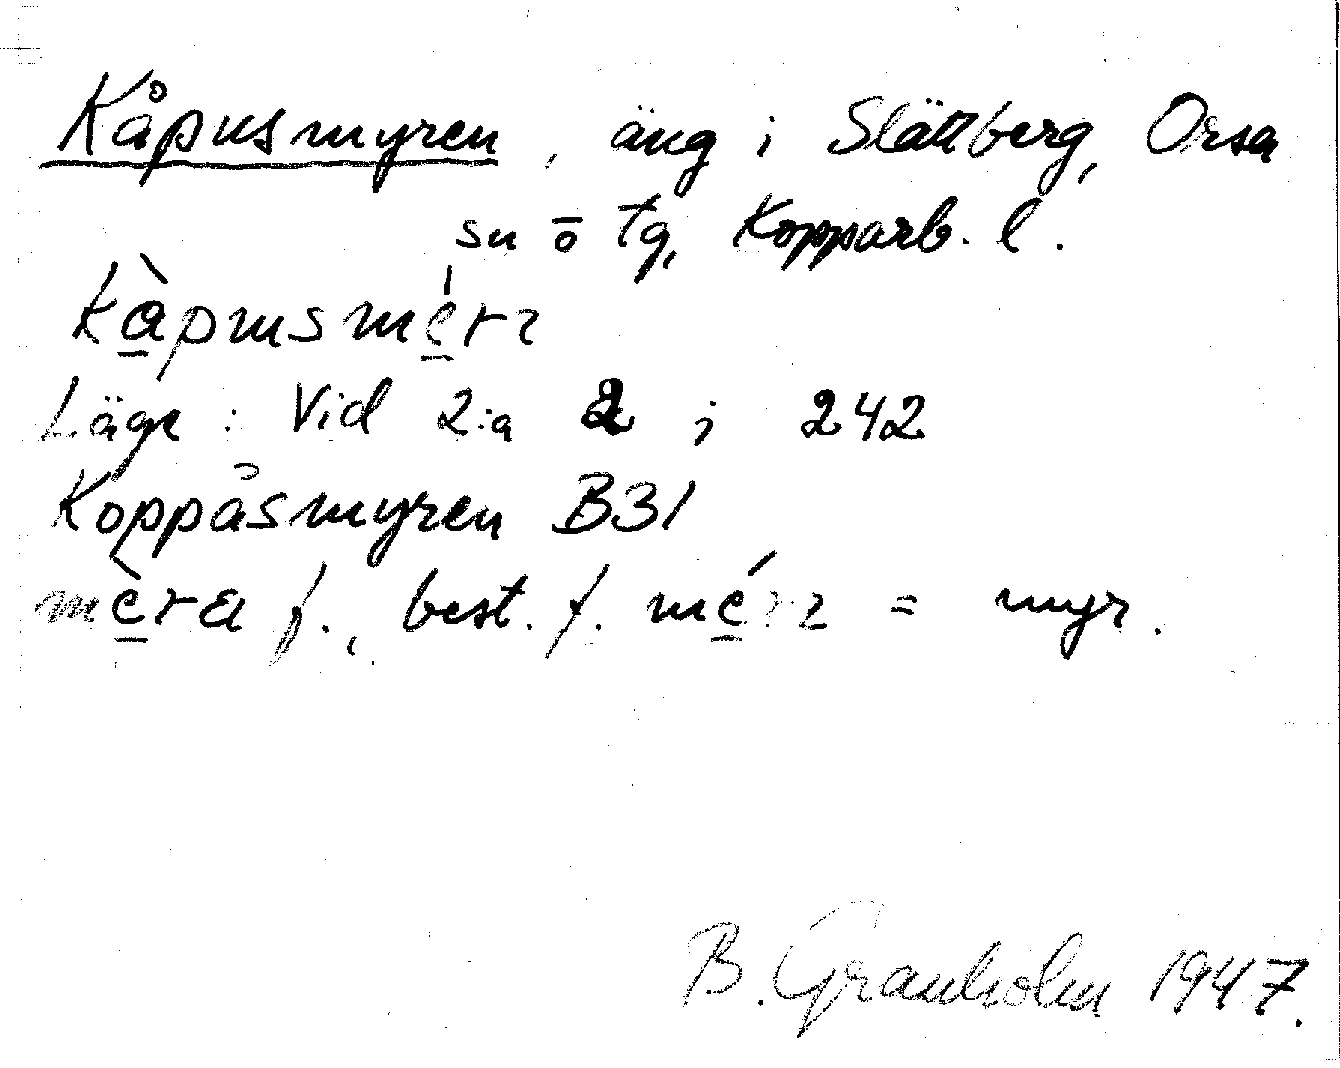 Kåpusmyren, äng i Slättberg, Orsa
sn ö tg, Kopparb. l.
Läge: Vid 2:a 2 i 242
Koppåsmyren B31
mèra f., best. f. = myr.
B. Granholm 1947.